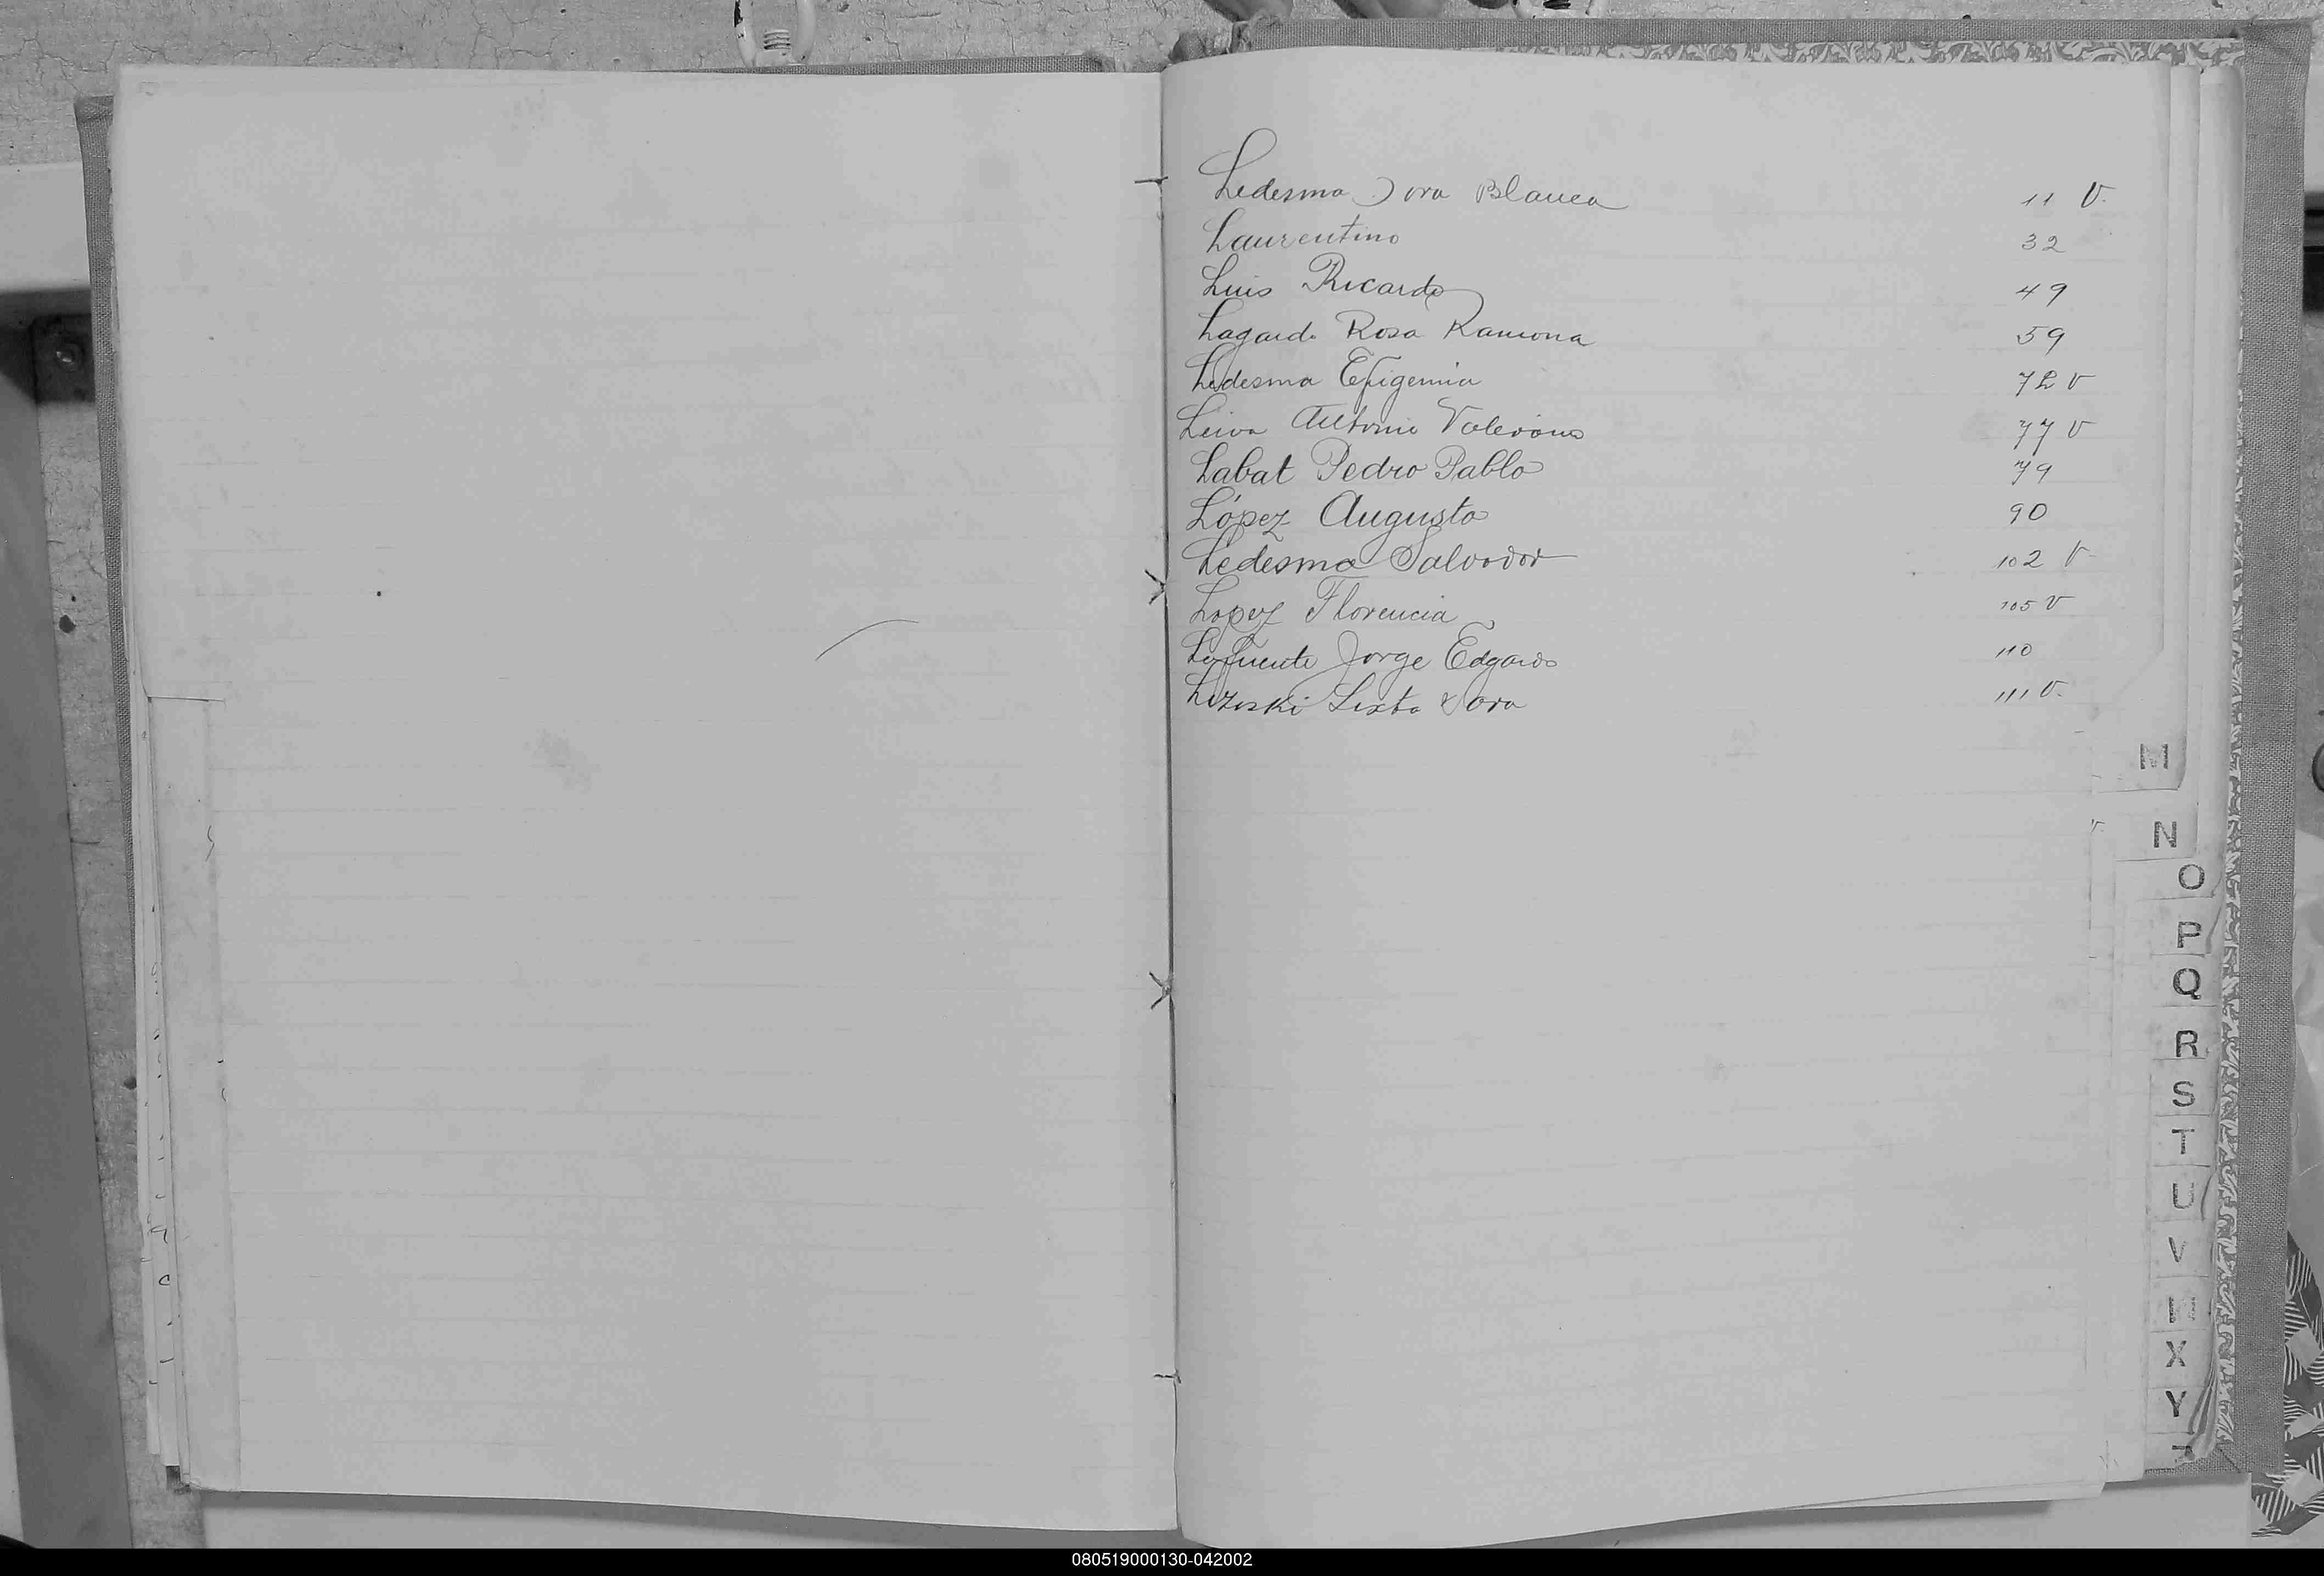 Ledesma Dora Blanca 11 V.
Laurentino 32
Luis Ricardo 49
Lagarde Rosa Ramona 59
Ledesma Efigenia 72 V
Leiva Antonio Valeriano 77 V
Labat Pedro Pablo 79
López Augusto 90
Ledesma Salvador 102 V
Lopez Florencia 105 V
Lafuente Jorge Edgardo 110
Sixta Dora 111 V.
M
N
O
P
Q
R
S
T
U
V
X
Y
080519000130-042002